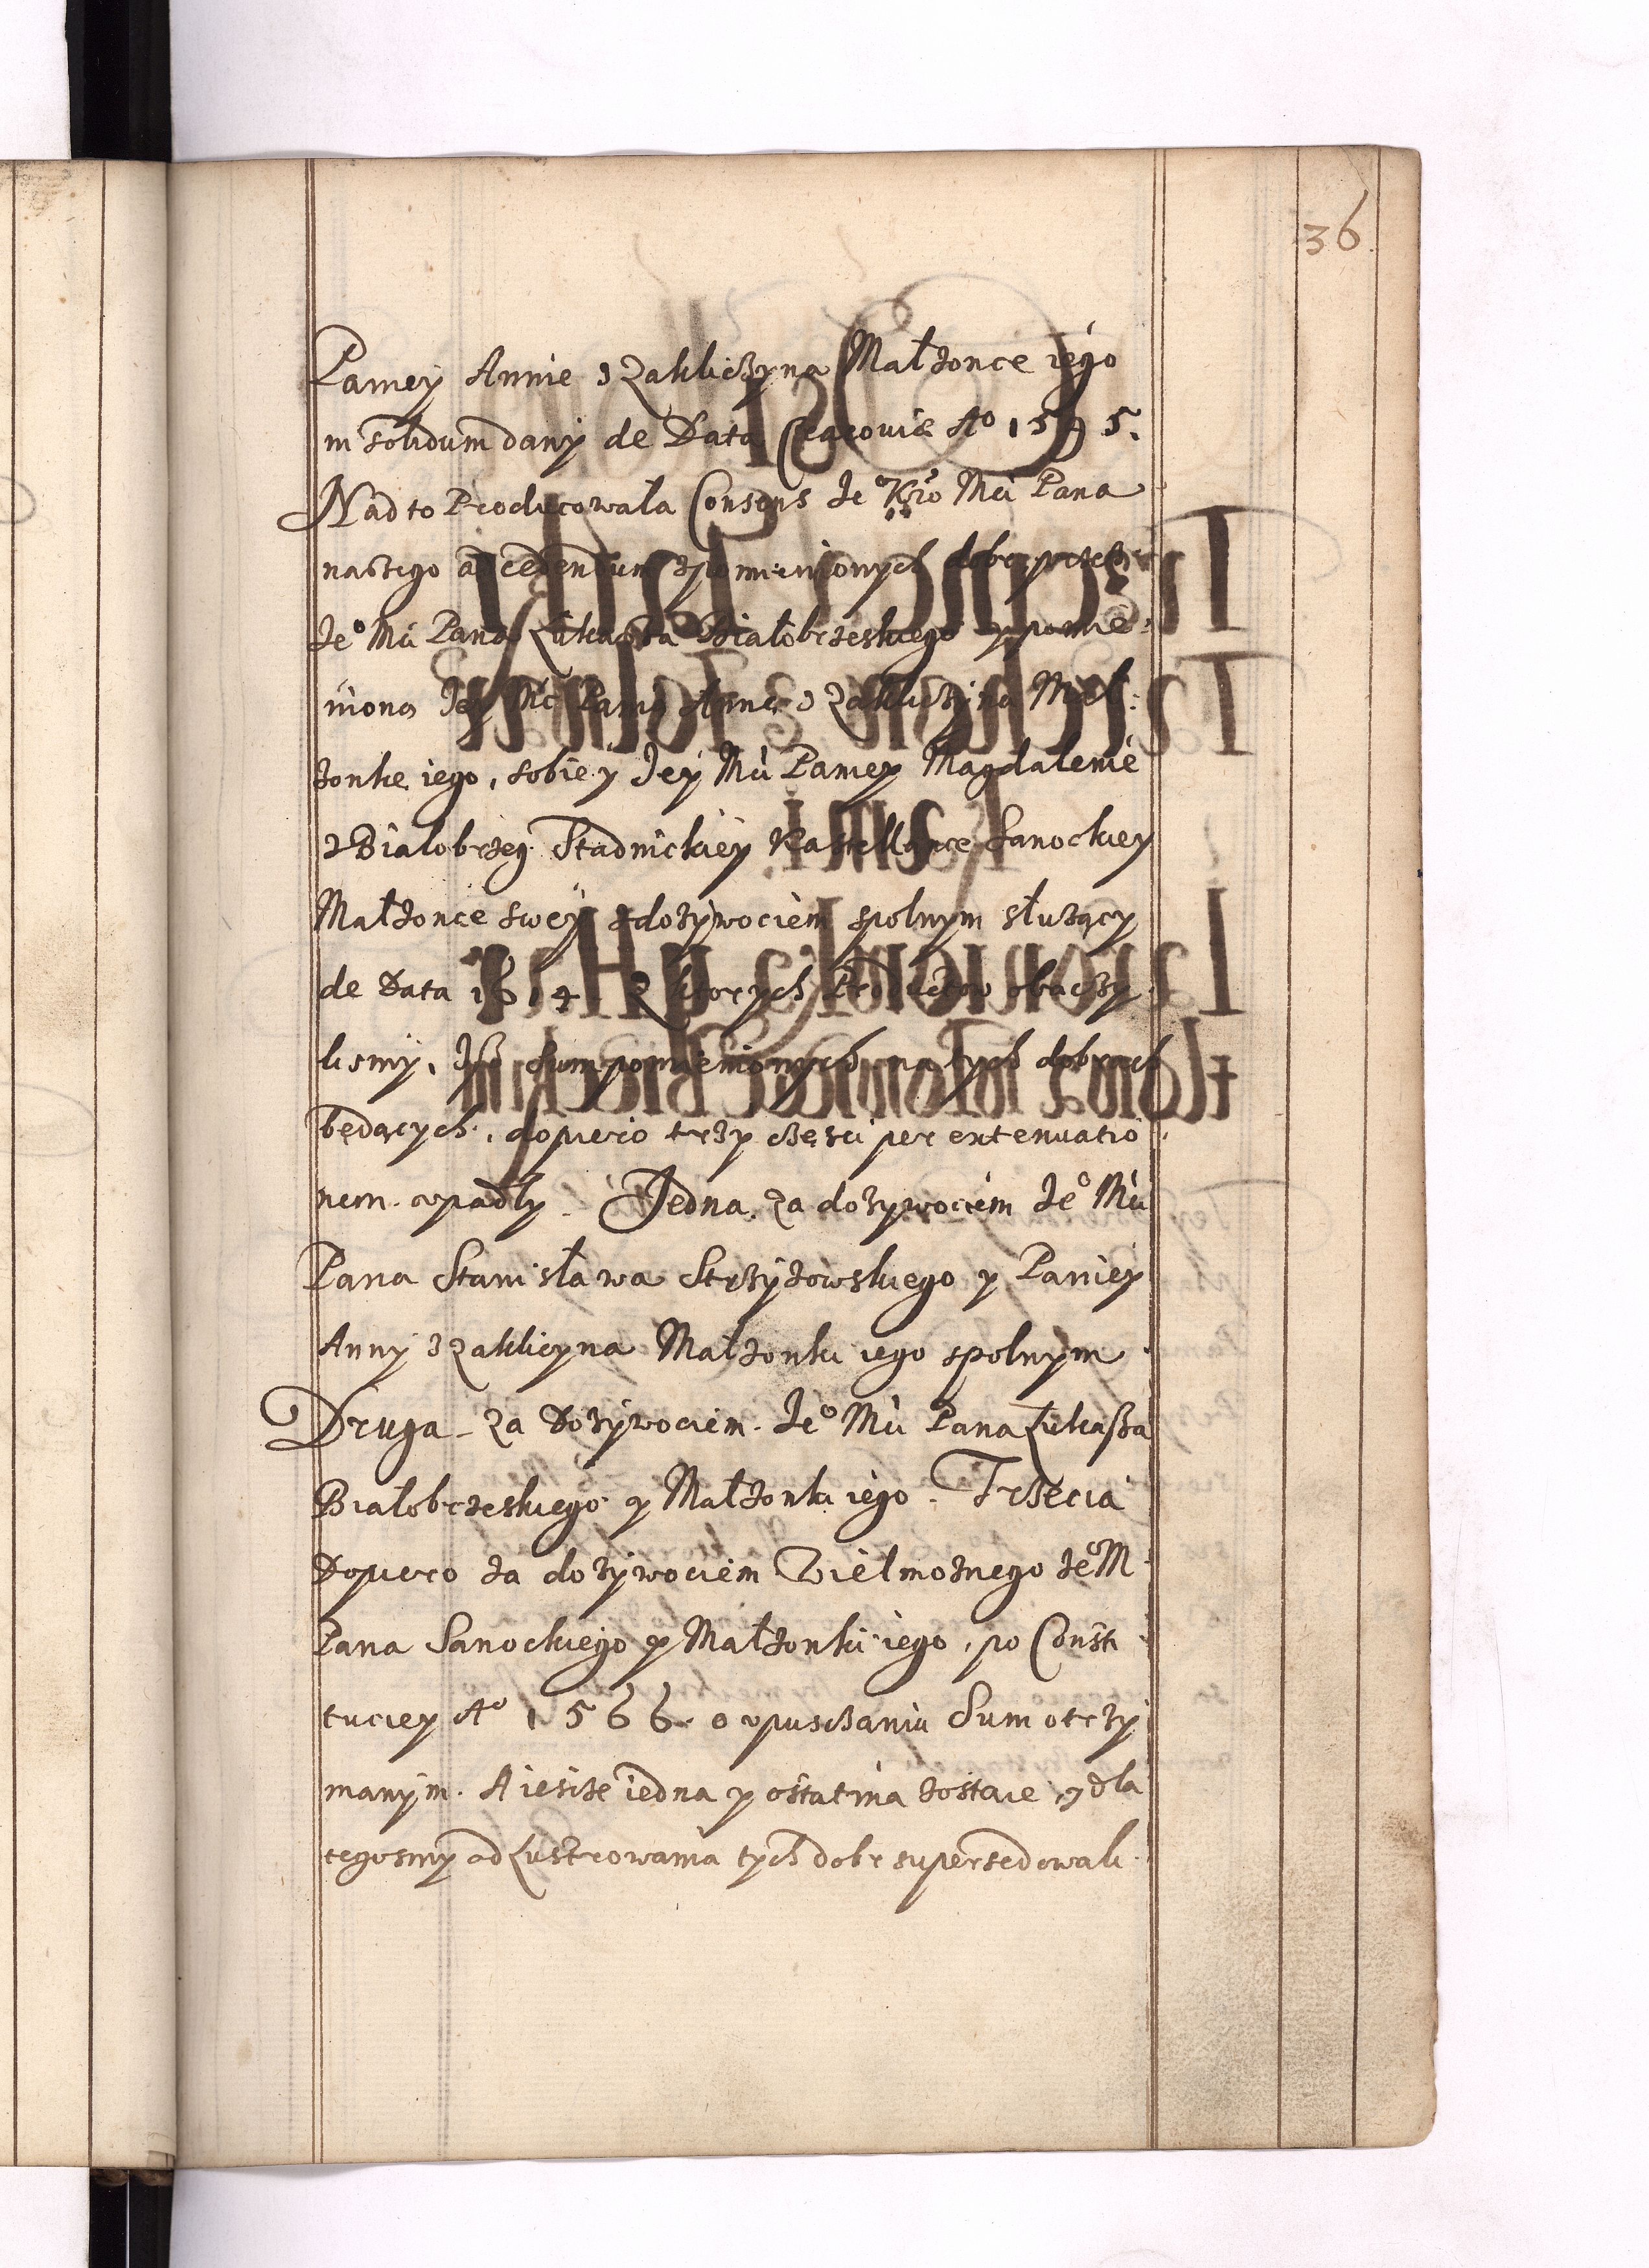 36
Paniey Annie z Zakliczyna Małżonce iego
in solidum dany de Data Cracoviæ Aº 1595.
Nad to Producowała Consens Jeº Krº Mći Pana
naszego ad cedendum wspomnionych dobr przez
Jeº Mći Pana Łukasza Białobrzeskiego y pomie
niona Jey Mć Panią Anne z Zakliczyna Mał
żonke iego, sobie y Jey Mći Paniey Magdalenie
z Białobrzeg Stadnickiey Kasztellance Sanockiey
Małżonce swey z dożywociem spolnym służący
de Data 1614. Z ktorych Productow obaczy
lismy, Jże Summ pomienionych na tych dobrach
będących, dopiero trzy części per extenuatio
nem upadły. Jedna za dożywociem Jeº Mći
Pana Stanisława Strzyżowskiego y Paniey
Anny z Zaklicyna Małżonki iego spolnym
Druga za Dożywociem Jeº Mći Pana Łukasza
Białobrzeskiego y Małżonki iego. Trzecia
Dopiero za dożywociem Wielmożnego Jeº M
Pana Sanockiego y Małżonki iego, po Consti
tuciey Aº 1566. o opuszczaniu Sum otrzy
manym. A ieszcze iedna y ostatnia zostaie, y dla
tegosmy od Lustrowania tych dobr supersedowali.